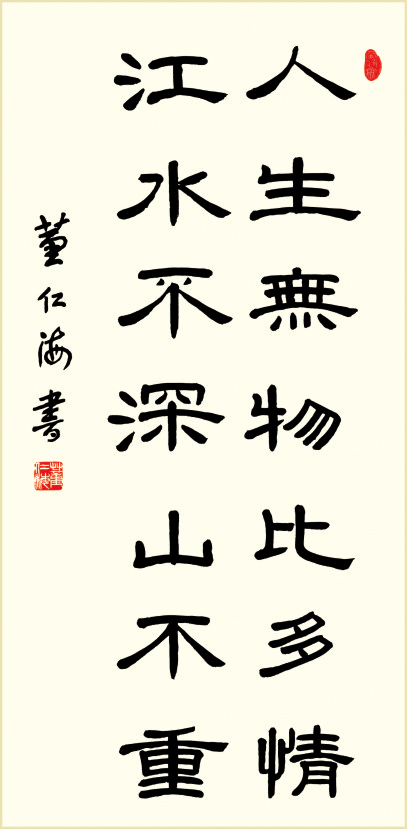 人生無物比多情
江水不深山不重
董仁海書
董仁海